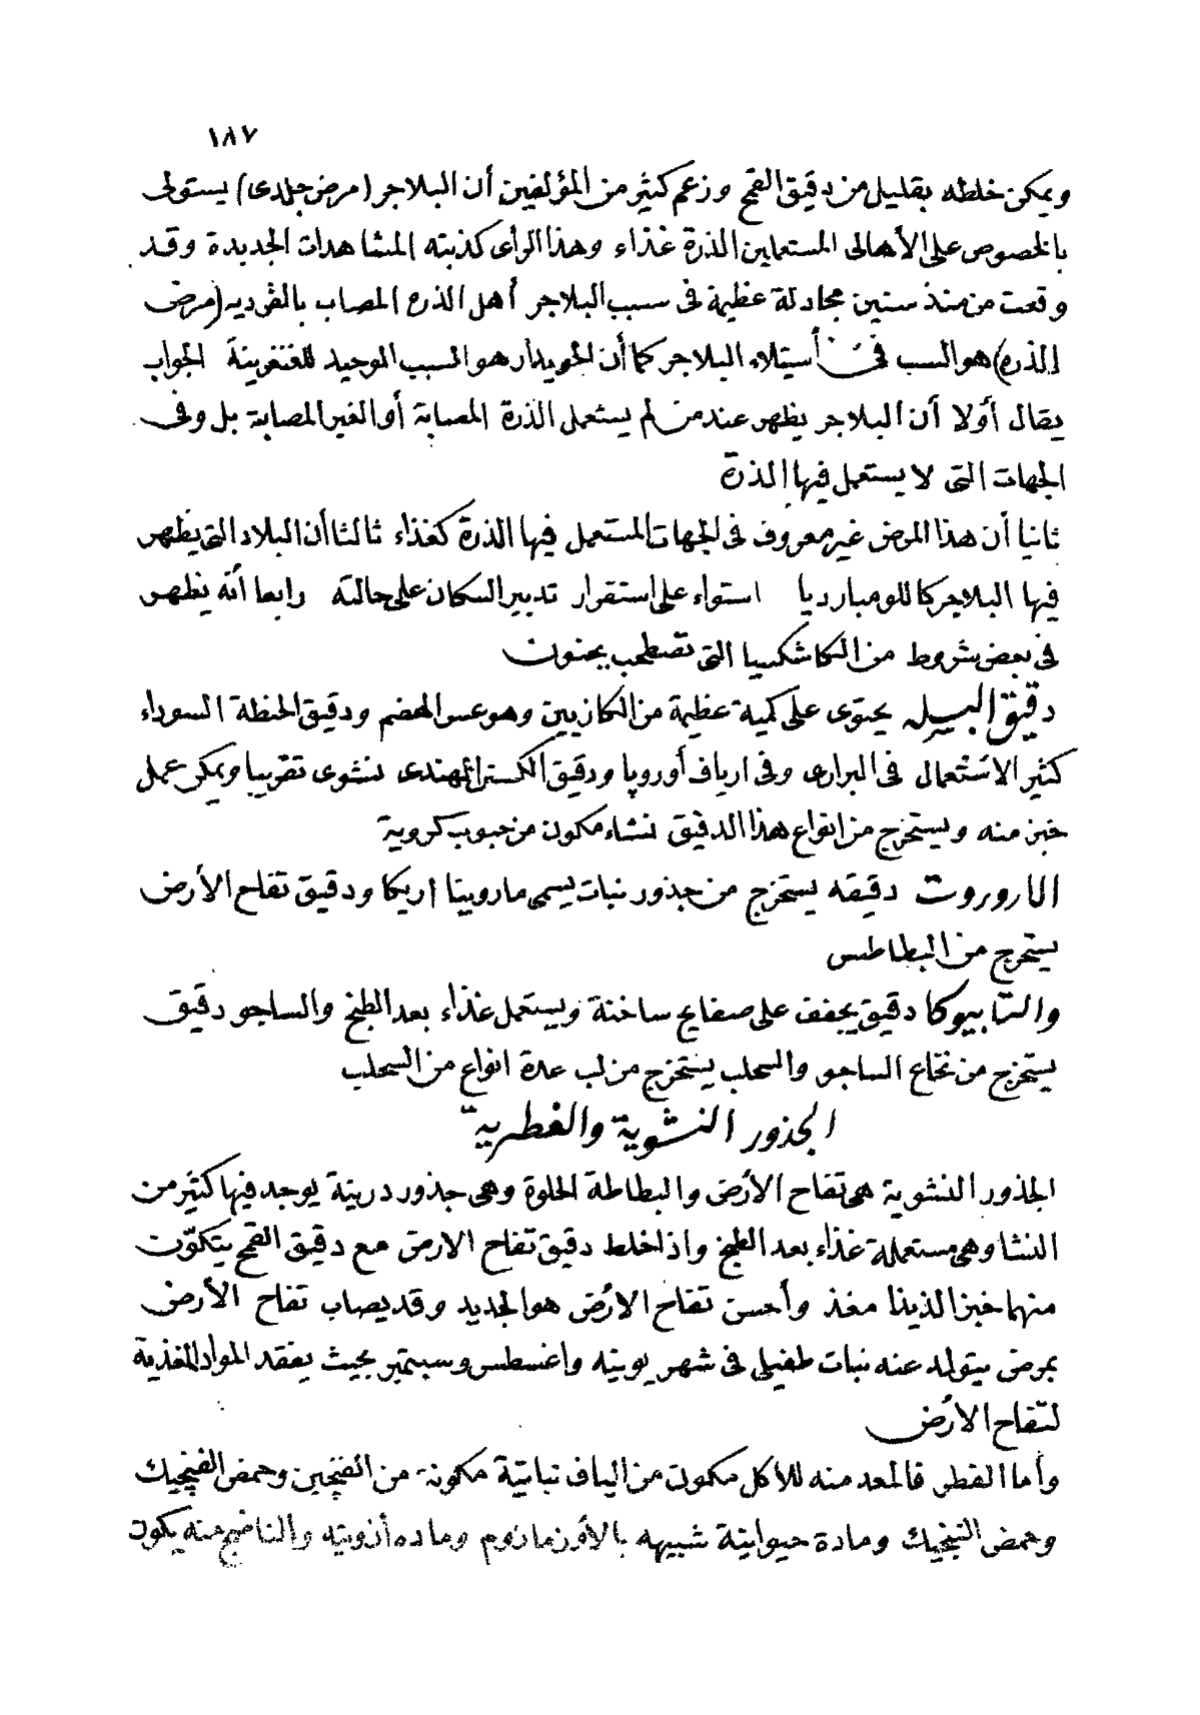 ١٨٧
ويمكن خلطه بقليل من دقيق القمح وزعم كثير من المؤلفين أن البلاجر (مرض جلدى) يستولى
بالخصوص على الأهالى المستعملين الذرة غذاء وهذا الرأى كذبته المشاهدات الجديدة وقد
وقعت من منذ سنين مجادلة عظيمة فى سبب البلاجر أهل الذره المصاب بالفرديه (مرض
الذره) هو السبب فى أستيلاء البلاجر كما أن الجويدار هو السبب الوحيد للغنغرينة الجواب
يقال أوّلا أن البلاجر يظهر عند من لم يستعمل الذرة المصابة أو الغير المصابة بل وفى
الجهات التى لا يستعمل فيها الذرة
ثانيا أن هذا المرض غير معروف فى الجهات المستعمل فيها الذرة كغذاء ثالثا أن البلاد التى يظهر
فيها البلاجر كاللومبارديا استواء على استقرار تدبير السكان على حالته رابعا أنه يظهر
فى بعض شروط من الكاشكسيا التى تصطحب بجنون
دقيق البسله يحتوى على كمية عظيمة من الكازيين وهو عسر الهضم ودقيق الحنطة السوداء
كثير الاستعمال فى البرارى وفى ارياف أوروپا ودقيق الكسترا الهندى نشوى تقريبا ويمكن عمل
خبز منه ويستخرج من انواع هذا الدقيق نشاء مكون من حبوب كروية
الاروروت دقيقه يستخرج من جذور نبات يسمى مارونتا اريكا ودقيق تفاح الأرض
يستخرج من البطاطس
والتابيوكا دقيق يجفف على صفايح ساخنة ويستعمل غذاء بعد الطبخ والساجو دقيق
يستخرج من نخاع الساجو والسحلب يستخرج من لب عدة انواع من السحلب
الجذور النشوية والفطرية
الجذور النشوية هى تفاح الأرض والبطاطة الحلوة وهى جذور درنية يوجد فيها كثير من
النشا وهى مستعملة غذاء بعد الطبخ واذا خلط دقيق تفاح الارض مع دقيق القمح يتكوّن
منهما خبز الذيذا مغذ وأحسن تفاح الارض هو الجديد وقد يصاب تفاح الأرض
بمرض يتولد عنه نبات طفيلى فى شهر يونيه واغسطس وسبتمبر بحيث يفقد المواد المغذية
لتفاح الأرض
وأما الفطر فالمعد منه للأكل مكون من الياف نباتية مكونة من الفنجين وحمض الفنجيك
وحمض ومادة حيوانية شبيهه بالأوزمازوم وماده أزوتيه والناضج منه يكون